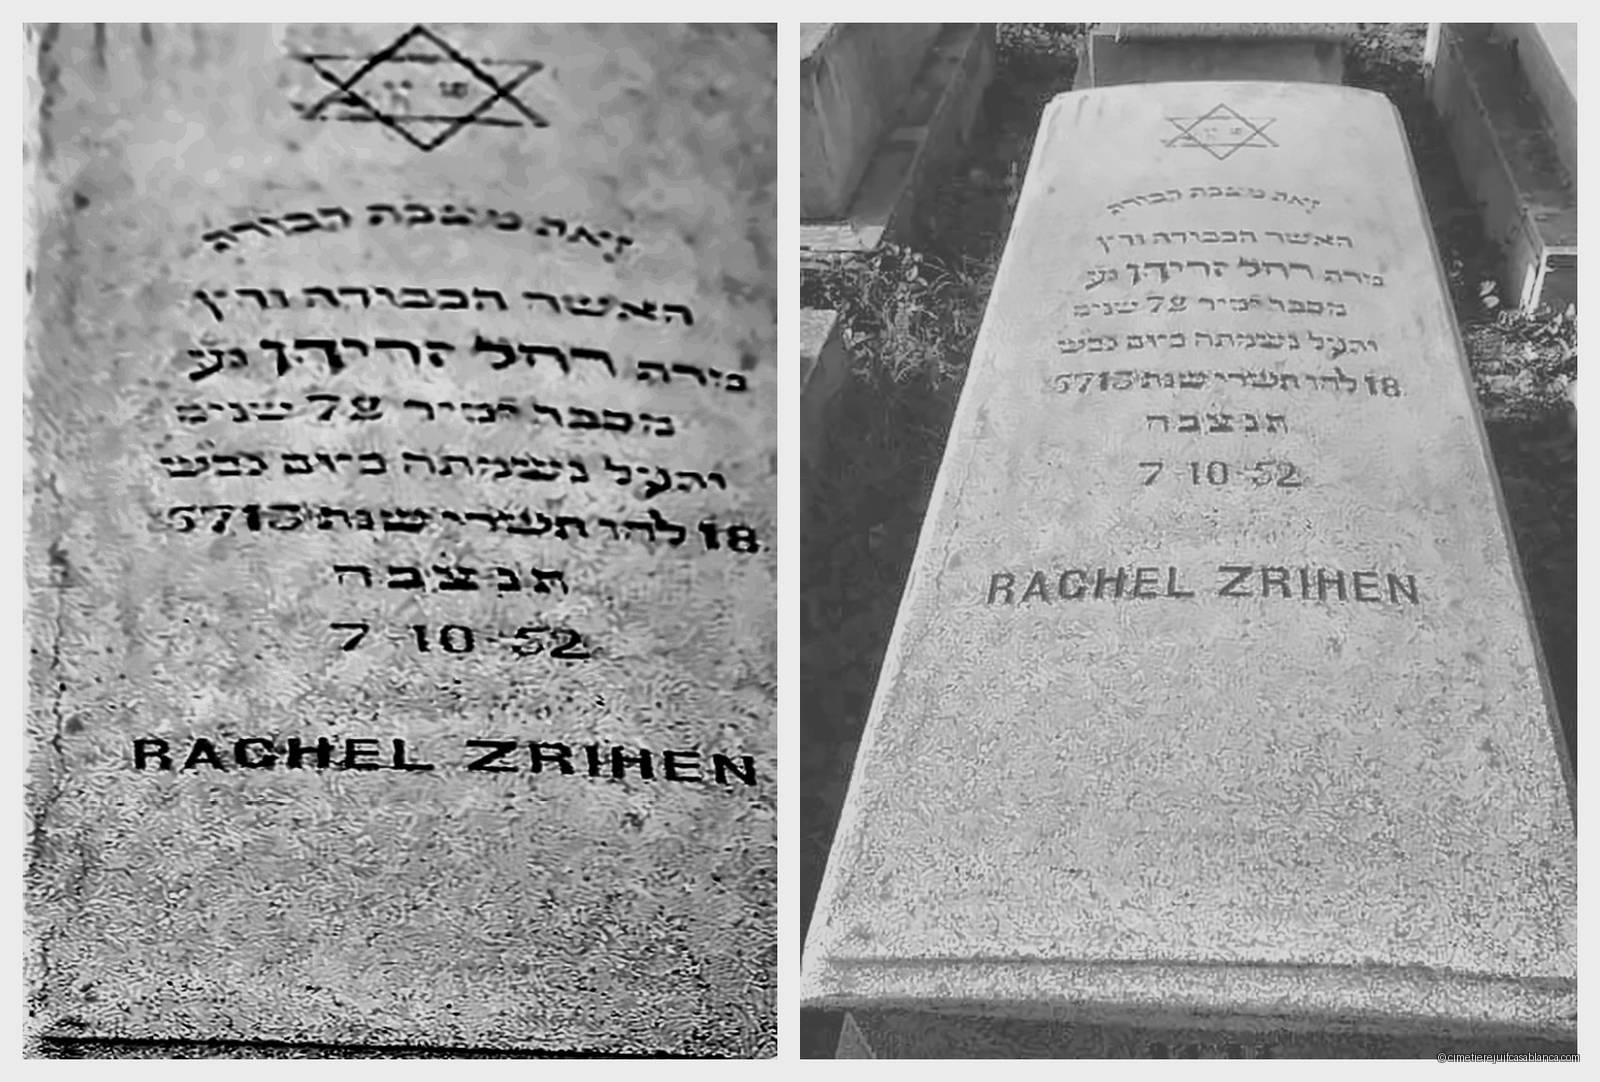 זאת מצבת קבורת
האשה הכבודה ורץ
מירה רחל זריהן נע
מספר ימיה 72 שנים
ותעל נשמתה ביום נבש
18 לחו תשרי שנת 5713
ת נ צ ב ה
7 10 52
RACHEL ZRIHEN
זאת מצבת קבורת
האשה הכבודה ורץ
מירה רחל זריהן נע
מספר ימיה 72 שנים
ותעל נשמתה ביום נבש
18 לחו תשרי שנת 5713
ת נ צ ב ה
7 10 52
RACHEL ZRIHEN
©cimetierejuifcasablanca.com